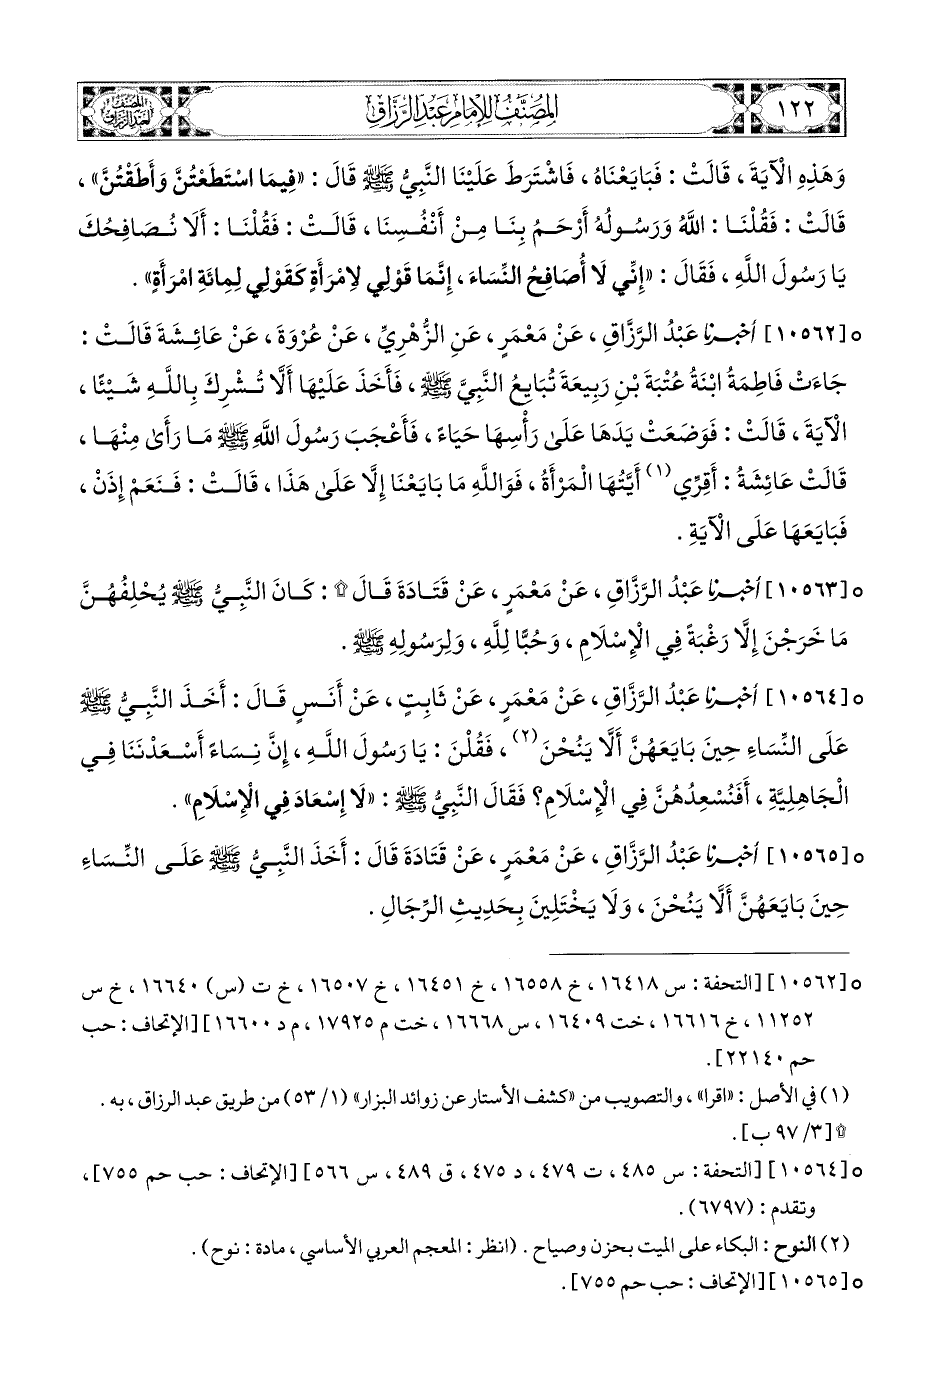 ١٢٢
المصنف للإمام عبد الرزاق
المصنف لعبد الرزاق
وَهَذِهِ الْآيَةَ ، قَالَتْ : فَبَايَعْنَاهُ ، فَاشْتَرَطَ عَلَيْنَا النَّبِيُّ ﷺ قَالَ : «فِيمَا اسْتَطَعْتُنَّ وَأَطَقْتُنَّ» ،
قَالَتْ : فَقُلْنَا : اللَّهُ وَرَسُولُهُ أَرْحَمُ بِنَا مِنْ أَنْفُسِنَا ، قَالَتْ : فَقُلْنَا : أَلَا نُصَافِحُكَ
يَا رَسُولَ اللَّهِ ، فَقَالَ : «إِنِّي لَا أُصَافِحُ النِّسَاءَ ، إِنَّمَا قَوْلِي لِامْرَأَةٍ كَقَوْلِي لِمِائَةِ امْرَأَةٍ» .
○ [١٠٥٦٢] أخبرنا عَبْدُ الرَّزَّاقِ ، عَنْ مَعْمَرٍ ، عَنِ الزُّهْرِيِّ ، عَنْ عُرْوَةَ ، عَنْ عَائِشَةَ قَالَتْ :
جَاءَتْ فَاطِمَةُ ابْنَةُ عُتْبَةَ بْنِ رَبِيعَةَ تُبَايِعُ النَّبِيَّ ﷺ ، فَأَخَذَ عَلَيْهَا أَلَّا تُشْرِكَ بِاللَّهِ شَيْئًا ،
الْآيَةَ ، قَالَتْ : فَوَضَعَتْ يَدَهَا عَلَىٰ رَأْسِهَا حَيَاءً ، فَأَعْجَبَ رَسُولَ اللَّهِ ﷺ مَا رَأَىٰ مِنْهَا ،
قَالَتْ عَائِشَةُ : أَقِرِّي (١) أَيَّتُهَا الْمَرْأَةُ ، فَوَاللَّهِ مَا بَايَعْنَا إِلَّا عَلَىٰ هَذَا ، قَالَتْ : فَنَعَمْ إِذَنْ ،
فَبَايَعَهَا عَلَى الْآيَةِ .
○ [١٠٥٦٣] أخبرنا عَبْدُ الرَّزَّاقِ ، عَنْ مَعْمَرٍ ، عَنْ قَتَادَةَ قَالَ ۩ : كَانَ النَّبِيُّ ﷺ يُحْلِفُهُنَّ
مَا خَرَجْنَ إِلَّا رَغْبَةً فِي الْإِسْلَامِ ، وَحُبًّا لِلَّهِ ، وَلِرَسُولِهِ ﷺ .
○ [١٠٥٦٤] أخبرنا عَبْدُ الرَّزَّاقِ ، عَنْ مَعْمَرٍ ، عَنْ ثَابِتٍ ، عَنْ أَنَسٍ قَالَ : أَخَذَ النَّبِيُّ ﷺ
عَلَى النِّسَاءِ حِينَ بَايَعَهُنَّ أَلَّا يَنُحْنَ (٢) ، فَقُلْنَ : يَا رَسُولَ اللَّهِ ، إِنَّ نِسَاءً أَسْعَدْنَنَا فِي
الْجَاهِلِيَّةِ ، أَفَنُسْعِدُهُنَّ فِي الْإِسْلَامِ؟ فَقَالَ النَّبِيُّ ﷺ : «لَا إِسْعَادَ فِي الْإِسْلَامِ» .
○ [١٠٥٦٥] أخبرنا عَبْدُ الرَّزَّاقِ ، عَنْ مَعْمَرٍ ، عَنْ قَتَادَةَ قَالَ : أَخَذَ النَّبِيُّ ﷺ عَلَى النِّسَاءِ
حِينَ بَايَعَهُنَّ أَلَّا يَنُحْنَ ، وَلَا يَخْتَلِينَ بِحَدِيثِ الرِّجَالِ .
○ [١٠٥٦٢] [التحفة : س ١٦٤١٨ ، خ ١٦٥٥٨ ، خ ١٦٤٥١ ، خ ١٦٥٠٧ ، خ ت (س) ١٦٦٤٠ ، خ س
١١٢٥٢ ، خ ١٦٦١٦ ، خت ١٦٤٠٩ ، س ١٦٦٦٨ ، خت م ١٧٩٢٥ ، م د ١٦٦٠٠] [الإتحاف : حب
حم ٢٢١٤٠] .
(١) في الأصل : «اقرا» ، والتصويب من «كشف الأستار عن زوائد البزار» (١/ ٥٣) من طريق عبد الرزاق ، به .
۩ [٣/ ٩٧ ب] .
○ [١٠٥٦٤] [التحفة : س ٤٨٥ ، ت ٤٧٩ ، د ٤٧٥ ، ق ٤٨٩ ، س ٥٦٦] [الإتحاف : حب حم ٧٥٥] ،
وتقدم : (٦٧٩٧) .
(٢) النوح : البكاء على الميت بحزن وصياح . (انظر : المعجم العربي الأساسي ، مادة : نوح) .
○ [١٠٥٦٥] [الإتحاف : حب حم ٧٥٥] .